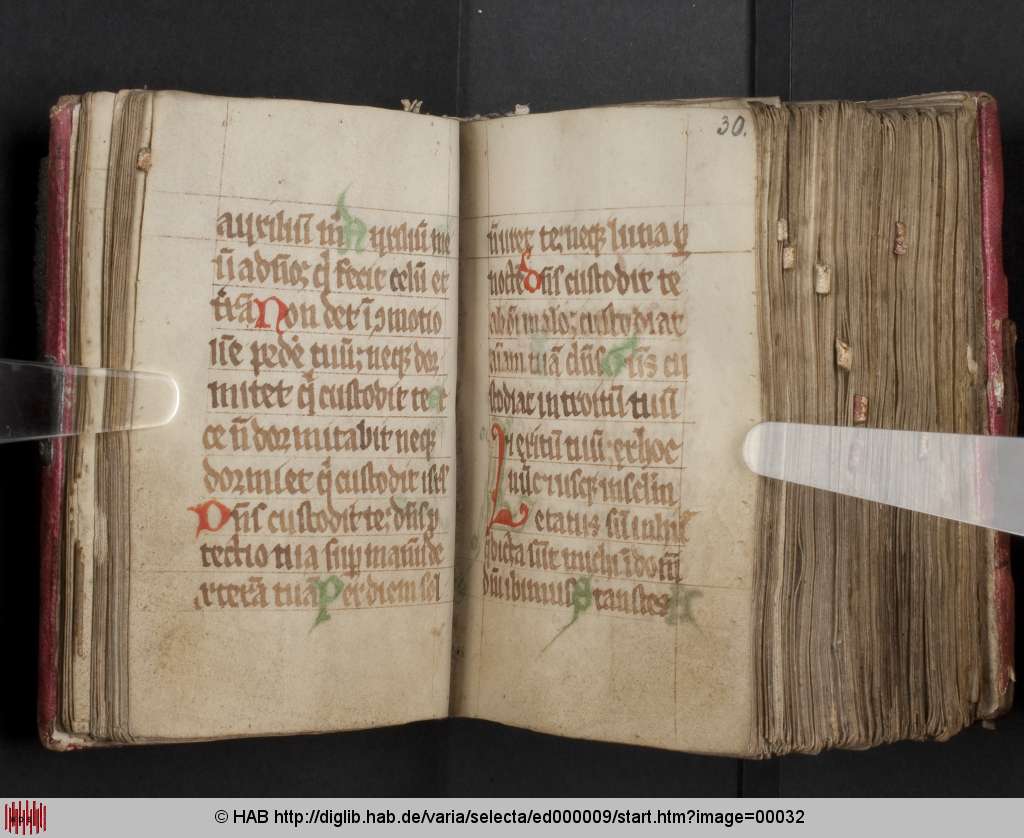 auxiliū m̄ Auxiliū me
ū a dn̄o; q̄ fecit celū et
t̄rā Non det ī ɔmotio
nē pedē tuū; neqȝ dor
mitet q̄ custodit te E
ce n̄ dormitabit neqȝ
dormiet q̄ custodit isrl̄
Dn̄s custodit te dn̄s p
tectio tua sup manū de
xterā tuā Per diem sol
30.
n̄ uret te; neqȝ luna ꝑ
nocte Dn̄s custodit te
ab oī malo; custodiat
aīam tuā dn̄s Dn̄s cu
stodiat introitū tuū
et exitū tuū; ex hoc
nūc et usqȝ in sclm̄
Letatus sū in his
q̄ dicta sūt michi ī domū
dn̄i ibimus Stantes
© HAB http://diglib.hab.de/varia/selecta/ed000009/start.htm?image=00032